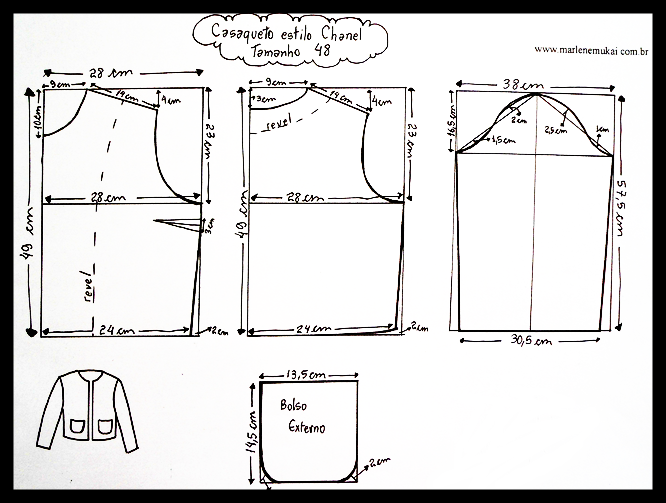 Casaqueto estilo Chanel
Tamanho 48
www.marlenemukai.com.br
28 cm
9 cm
14 cm
4 cm
10 cm
23 cm
49 cm
28 cm
3 cm
revel
24 cm
2 cm
9 cm
3 cm
14 cm
4 cm
revel
23 cm
49 cm
28 cm
24 cm
2 cm
38 cm
16,5 cm
2 cm
2,5 cm
1 cm
1,5 cm
57,5 cm
30,5 cm
13,5 cm
14,5 cm
Bolso
Externo
2 cm